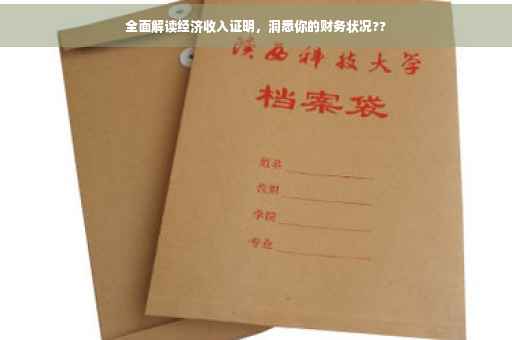 全面解读经济收入证明，洞悉你的财务状况??
陕西科技大学
档案袋
姓名
学院
专业